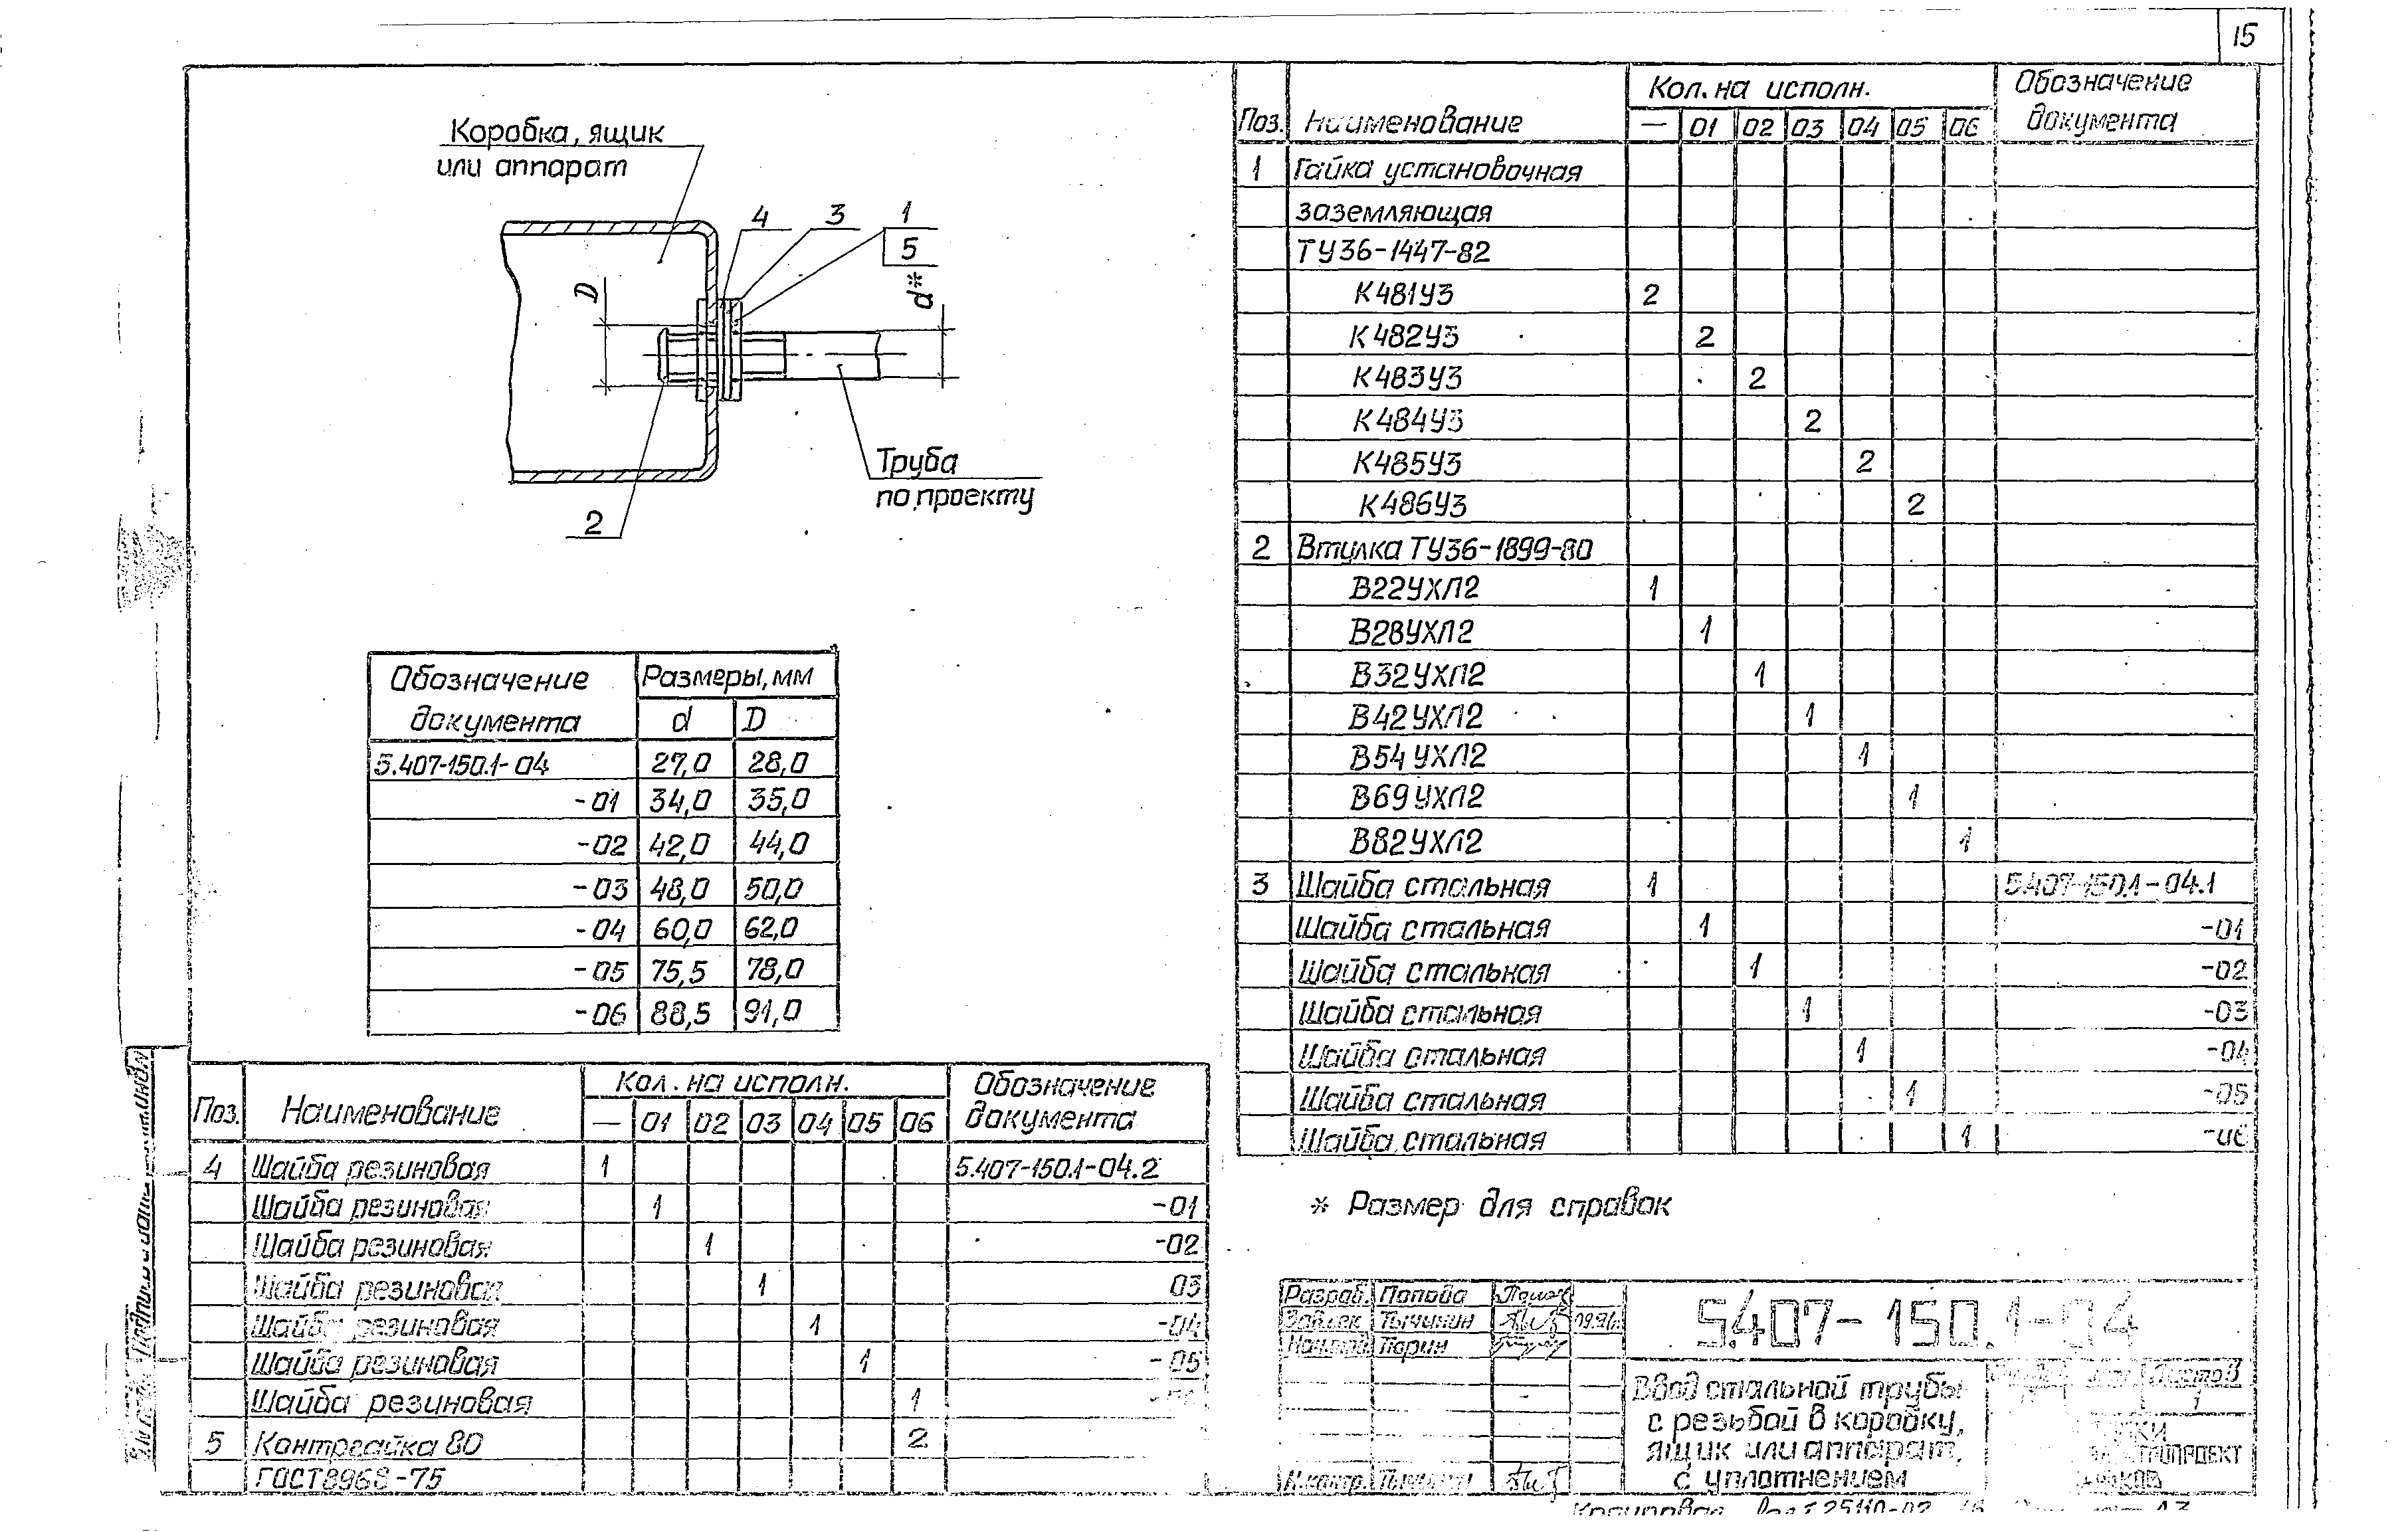 15
Коробка, ящик
или аппарат
4 3 1
5
D
d*
Труба
по проекту
2
Обозначение документа Размеры, мм
d D
5.407-150.1-04 27,0 28,0
-01 34,0 35,0
-02 42,0 44,0
-03 48,0 50,0
-04 60,0 62,0
-05 75,5 78,0
-06 88,5 91,0
Поз. Наименование Кол. на исполн. Обозначение документа
— 01 02 03 04 05 06
4 Шайба резиновая 1 5.407-150.1-04.2
Шайба резиновая 1 -01
Шайба резиновая 1 -02
Шайба резиновая 1 03
Шайба резиновая 1 -04
Шайба резиновая 1 -05
Шайба резиновая 1
5 Контргайка 80 2
ГОСТ 8968-75
Поз. Наименование Кол. на исполн. Обозначение документа
— 01 02 03 04 05 06
1 Гайка установочная
заземляющая
ТУ36-1447-82
К481У3 2
К482У3 2
К483У3 2
К484У3 2
К485У3 2
К486У3 2
2 Втулка ТУ36-1899-80
В22УХЛ2 1
В28УХЛ2 1
В32УХЛ2 1
В42УХЛ2 1
В54УХЛ2 1
В69УХЛ2 1
В82УХЛ2 1
3 Шайба стальная 1 5.407-150.1-04.1
Шайба стальная 1 -01
Шайба стальная 1 -02
Шайба стальная 1 -03
Шайба стальная 1 -04
Шайба стальная 1 -05
Шайба стальная 1
* Размер для справок
Разраб. Попова
Тычинин
Парин
Н.контр.
5.407-150.1-04
Ввод стальной трубы
с резьбой в коробку,
ящик или аппарат,
с уплотнением
Листов
1